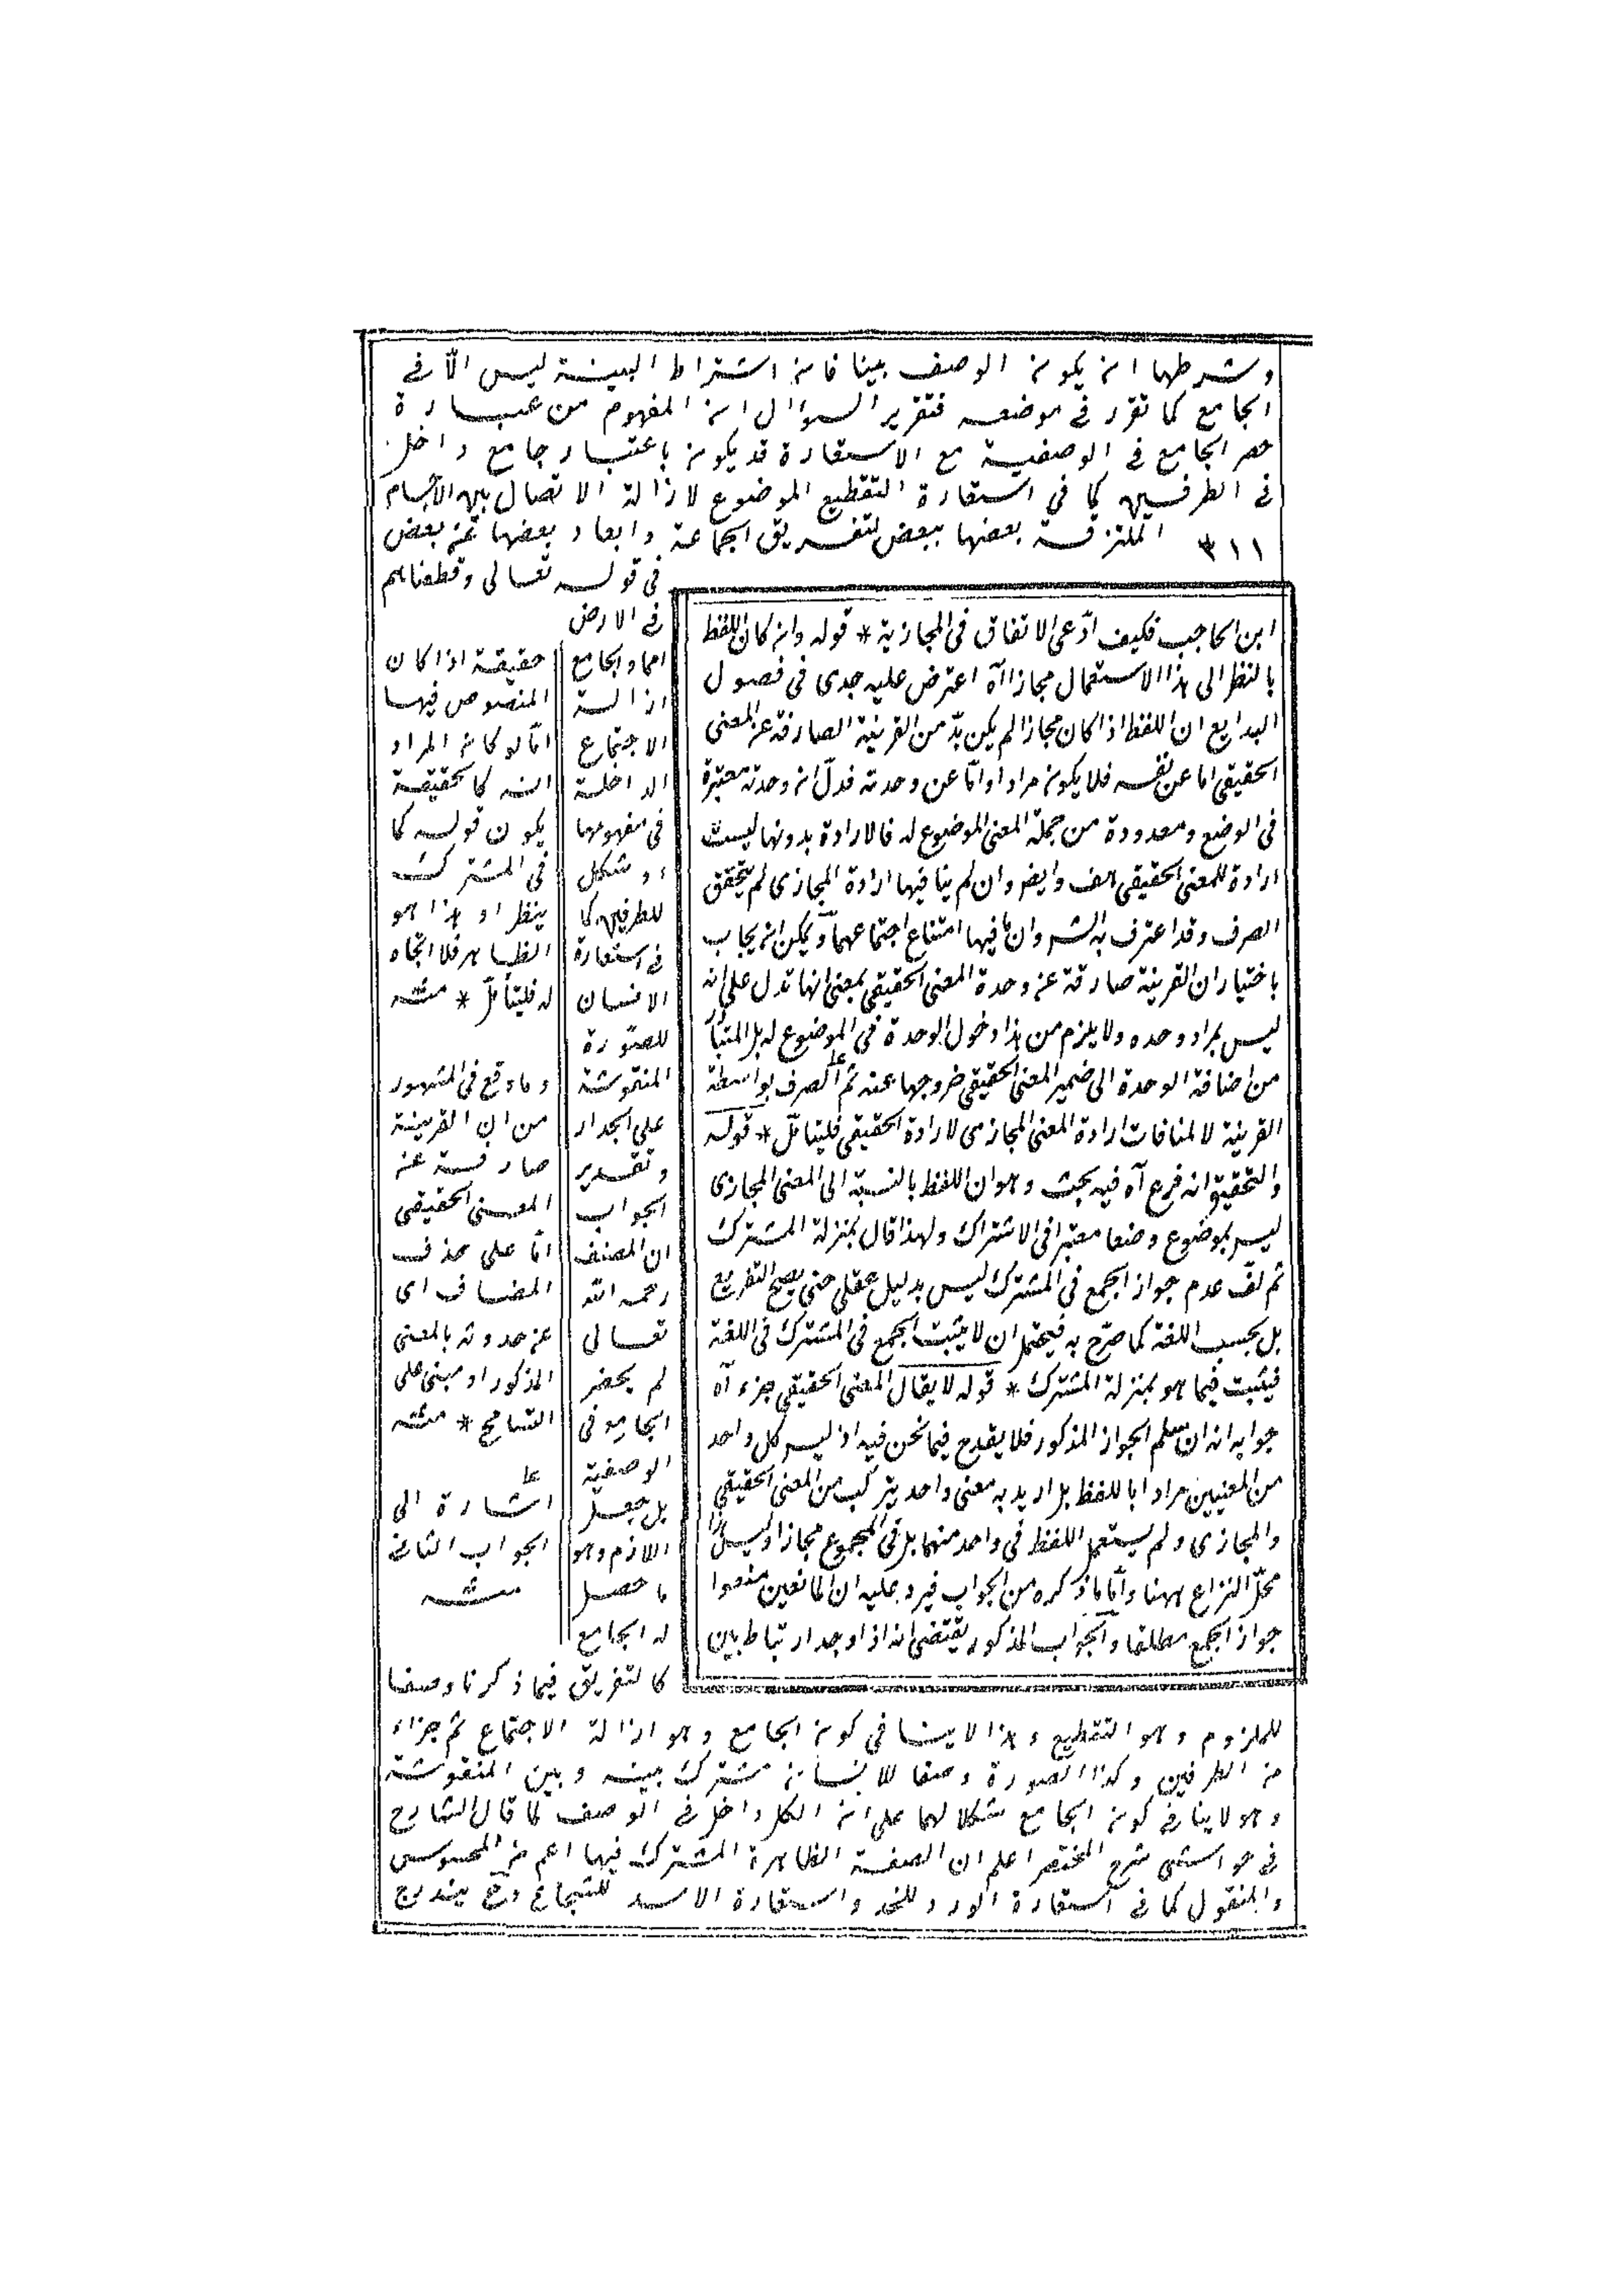 وشرطها ان يكون الوصف بينا فان اشتراط البينة ليس الّا فى
الجامع كما تقرّر فى موضعه فتقرير السؤال ان المفهوم من عبارة
حصر الجامع فى الوصفية مع الاستعارة قد يكون باعتبار جامع داخل
فى الطرفين كما فى استعارة التقطيع الموضوع لازالة الاتصال بين الاجسام
٣١١
الملتزقة بعضها ببعض لتفريق الجماعة وابعاد بعضها عن بعض
فى قوله تعالى وقطعناهم
فى الارض
امما والجامع
ازالة
الاجتماع
الداخلة
فى مفهومها
او شكل
للطرفين كما
فى استعارة
الانسان
للصّورة
المنقوشة
على الجدار
وتقدير
الجواب
ان المصنف
رحمه الله
تعالى
لم يحصر
الجامع فى
الوصفية
بل جعل
اللازم وهو
ما حصل
له الجامع
كالتفريق فيما ذكرنا وصفا
للملزوم وهو التقطيع وهذا لا ينافى كون الجامع وهو ازالة الاجتماع ثم جزاء
من الطرفين وكذا الصورة وصفا للانسان مشترك بينه وبين المنقوشة
وهو لا ينافى كون الجامع شكلا لهما على ان الكل داخل فى الوصف لما قال الشارح
فى حواشى شرح المختصر اعلم ان الصفة الظاهرة المشترك فيها اعم من المحسوس
والمنقول كما فى استعارة الورد للخد واستعارة الاسد للشجاع وح يندرج
ابن الحاجب فكيف ادّعى الاتفاق فى المجازية * قوله وان كان اللفظ
بالنظر الى هذا الاستعمال مجازا آه اعترض عليه جدى فى فصول
البدايع ان اللفظ اذا كان مجازا لم يكن بدّ من القرينة الصارفة عن المعنى
الحقيقى اما عن نفسه فلا يكون مرادا وامّا عن وحدته فدلّ ان وحدته معتبرة
فى الوضع ومعدودة من جملة المعنى الموضوع له فالارادة بدونها ليست
ارادة للمعنى الحقيقى هف وايضا وان لم ينافيها ارادة المجازى لم يتحقق
الصرف وقد اعترف به الش وان نافيها امتناع اجتماعهما ويمكن ان يجاب
باختيار ان القرينة صارفة عن وحدة المعنى الحقيقى بمعنى انها تدل على انه
ليس بمراد وحده ولا يلزم من هذا دخول الوحدة فى الموضوع له بل المتبادر
من اضافة الوحدة الى ضمير المعنى الحقيقى خروجها عنه ثم الصرف بواسطة
القرينة لا لمنافات ارادة المعنى المجازى لارادة الحقيقى فليتامّل * قوله
والتحقيق انه فرع آه فيه بحث وهو ان اللفظ بالنسبة الى المعنى المجازى
ليس بموضوع وضعا معتبرا فى الاشتراك ولهذا قال بمنزلة المشترك
ثم عدم جواز الجمع فى المشترك ليس بدليل عقلى حتى يصح التفريع
بل بحسب اللغة كما صرّح به فيحتمل ان لا يثبت الجمع فى المشترك فى اللغة
فيثبت فيما هو بمنزلة المشترك * قوله لا يقال المعنى الحقيقى جزء آه
جوابه انه ان سلم الجواز المذكور فلا يقدح فيما نحن فيه اذ ليس كل واحد
من المعنيين مرادا باللفظ بل اريد به معنى واحد يتركب من المعنى الحقيقى
والمجازى ولم يستعمل اللفظ فى واحد منهما بل فى المجموع مجازا وليس هذا
محلّ النزاع ههنا وامّا ما ذكره من الجواب فيرد عليه ان المانعين منعوا
جواز الجمع مطلقا والجواب المذكور يقتضى انه اذا وجد ارتباط بين
حقيقة اذا كان
المنصوص فيها
امّا لو كان المراد
انه كالحقيقة
يكون قوله كما
فى المشترك
ينظر او هذا هو
الظاهر فلا اتجاه
له فليتأمّل * منه
وما وقع فى المشهور
من ان القرينة
صارفة عن
المعنى الحقيقى
امّا على حذف
المضاف اى
عن حدوثه بالمعنى
المذكور او مبنى على
التسامح * منه
عا
اشارة الى
الجواب الثانى
منه